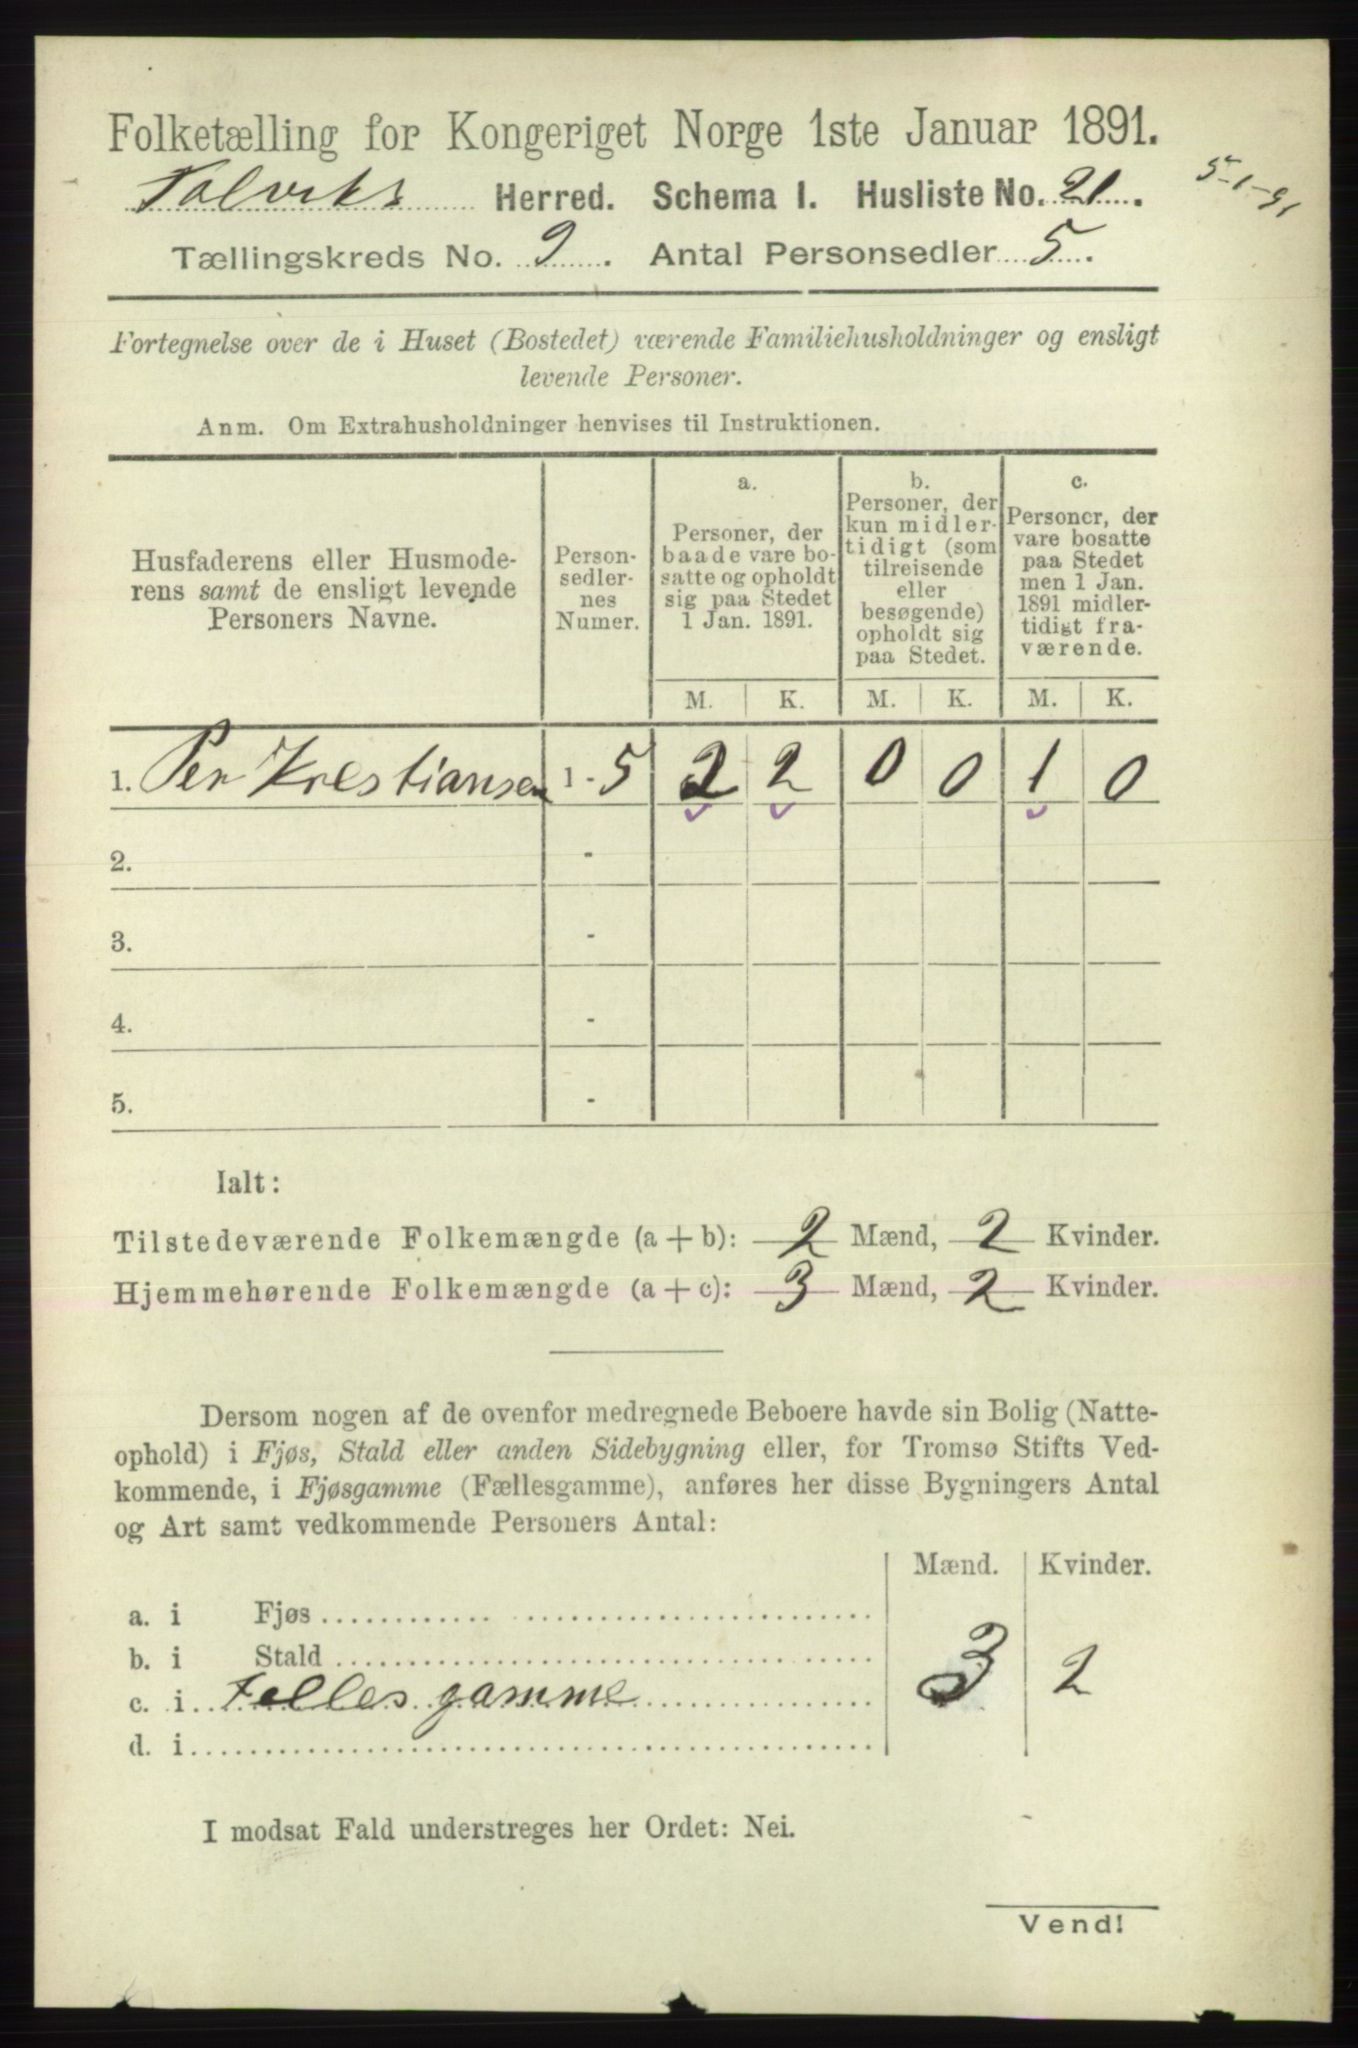 Folketælling for Kongeriget Norge 1ste Januar 1891.
Talviks Herred. Schema I. Husliste No. 21.
5-1-91
Tællingskreds No. 9. Antal Personsedler 5.
Fortegnelse over de i Huset (Bostedet) værende Familiehusholdninger og ensligt
levende Personer.
Anm. Om Extrahusholdninger henvises til Instruktionen.
Husfaderens eller Husmode-
rens samt de ensligt levende
Personers Navne.
Person-
sedler-
nes
Numer.
a.
Personer, der
baade vare bo-
satte og opholdt
sig paa Stedet
1 Jan. 1891.
b.
Personer, der
kun midler-
tidigt (som
tilreisende
eller
besøgende)
opholdt sig
paa Stedet.
c.
Personer, der
vare bosatte
paa Stedet
men 1 Jan.
1891 midler-
tidigt fra-
værende.
M. K. M. K. M. K.
1. Per Krestiansen 1 - 5 2 2 0 0 1 0
2. -
3. -
4. -
5. -
Ialt:
Tilstedeværende Folkemængde (a + b): 2 Mænd, 2 Kvinder.
Hjemmehørende Folkemængde (a + c): 3 Mænd, 2 Kvinder.
Dersom nogen af de ovenfor medregnede Beboere havde sin Bolig (Natte-
ophold) i Fjøs, Stald eller anden Sidebygning eller, for Tromsø Stifts Ved-
kommende, i Fjøsgamme (Fællesgamme), anføres her disse Bygningers Antal
og Art samt vedkommende Personers Antal:
Mænd. Kvinder.
a. i Fjøs
b. i Stald
c. i Felles gamme 3 2
d. i
I modsat Fald understreges her Ordet: Nei.
Vend!